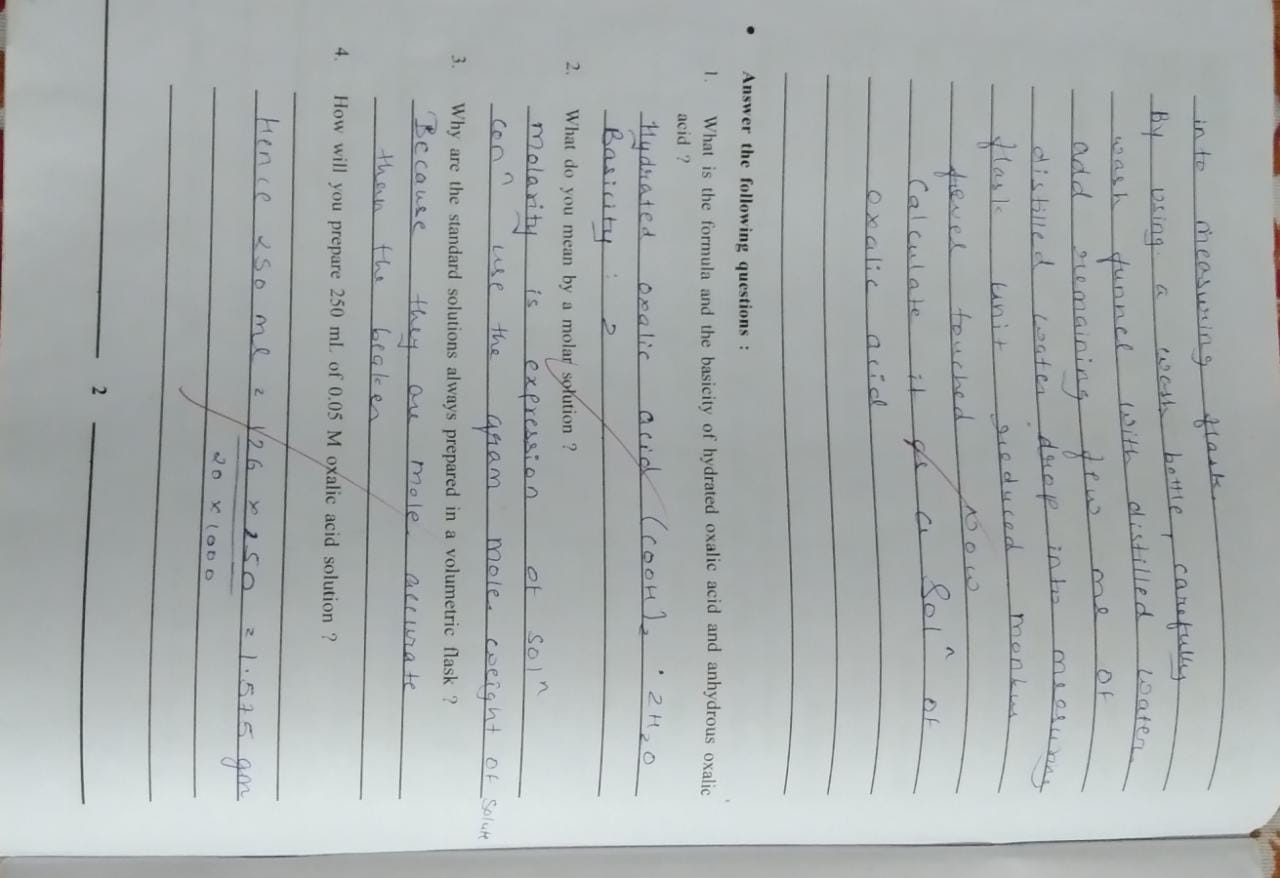 into measuring flask.
By using a wash bottle, carefully
wash funnel with distilled water
add remaining few me of
distilled water drop into measuring
flask unit
level touched Now
Calculate it as a Solⁿ of
oxalic acid
• Answer the following questions :
1. What is the formula and the basicity of hydrated oxalic acid and anhydrous oxalic
acid ?
Hydrated oxalic acid (COOH)₂ · 2H₂O
Basicity : 2
2. What do you mean by a molar solution ?
Molarity is expression of solⁿ
conⁿ use the gram mole weight of solute
3. Why are the standard solutions always prepared in a volumetric flask ?
Because they are mole accurate
than the beaker
4. How will you prepare 250 mL of 0.05 M oxalic acid solution ?
Hence 250 ml = 126 × 250 = 1.575 gm
20 × 1000
2